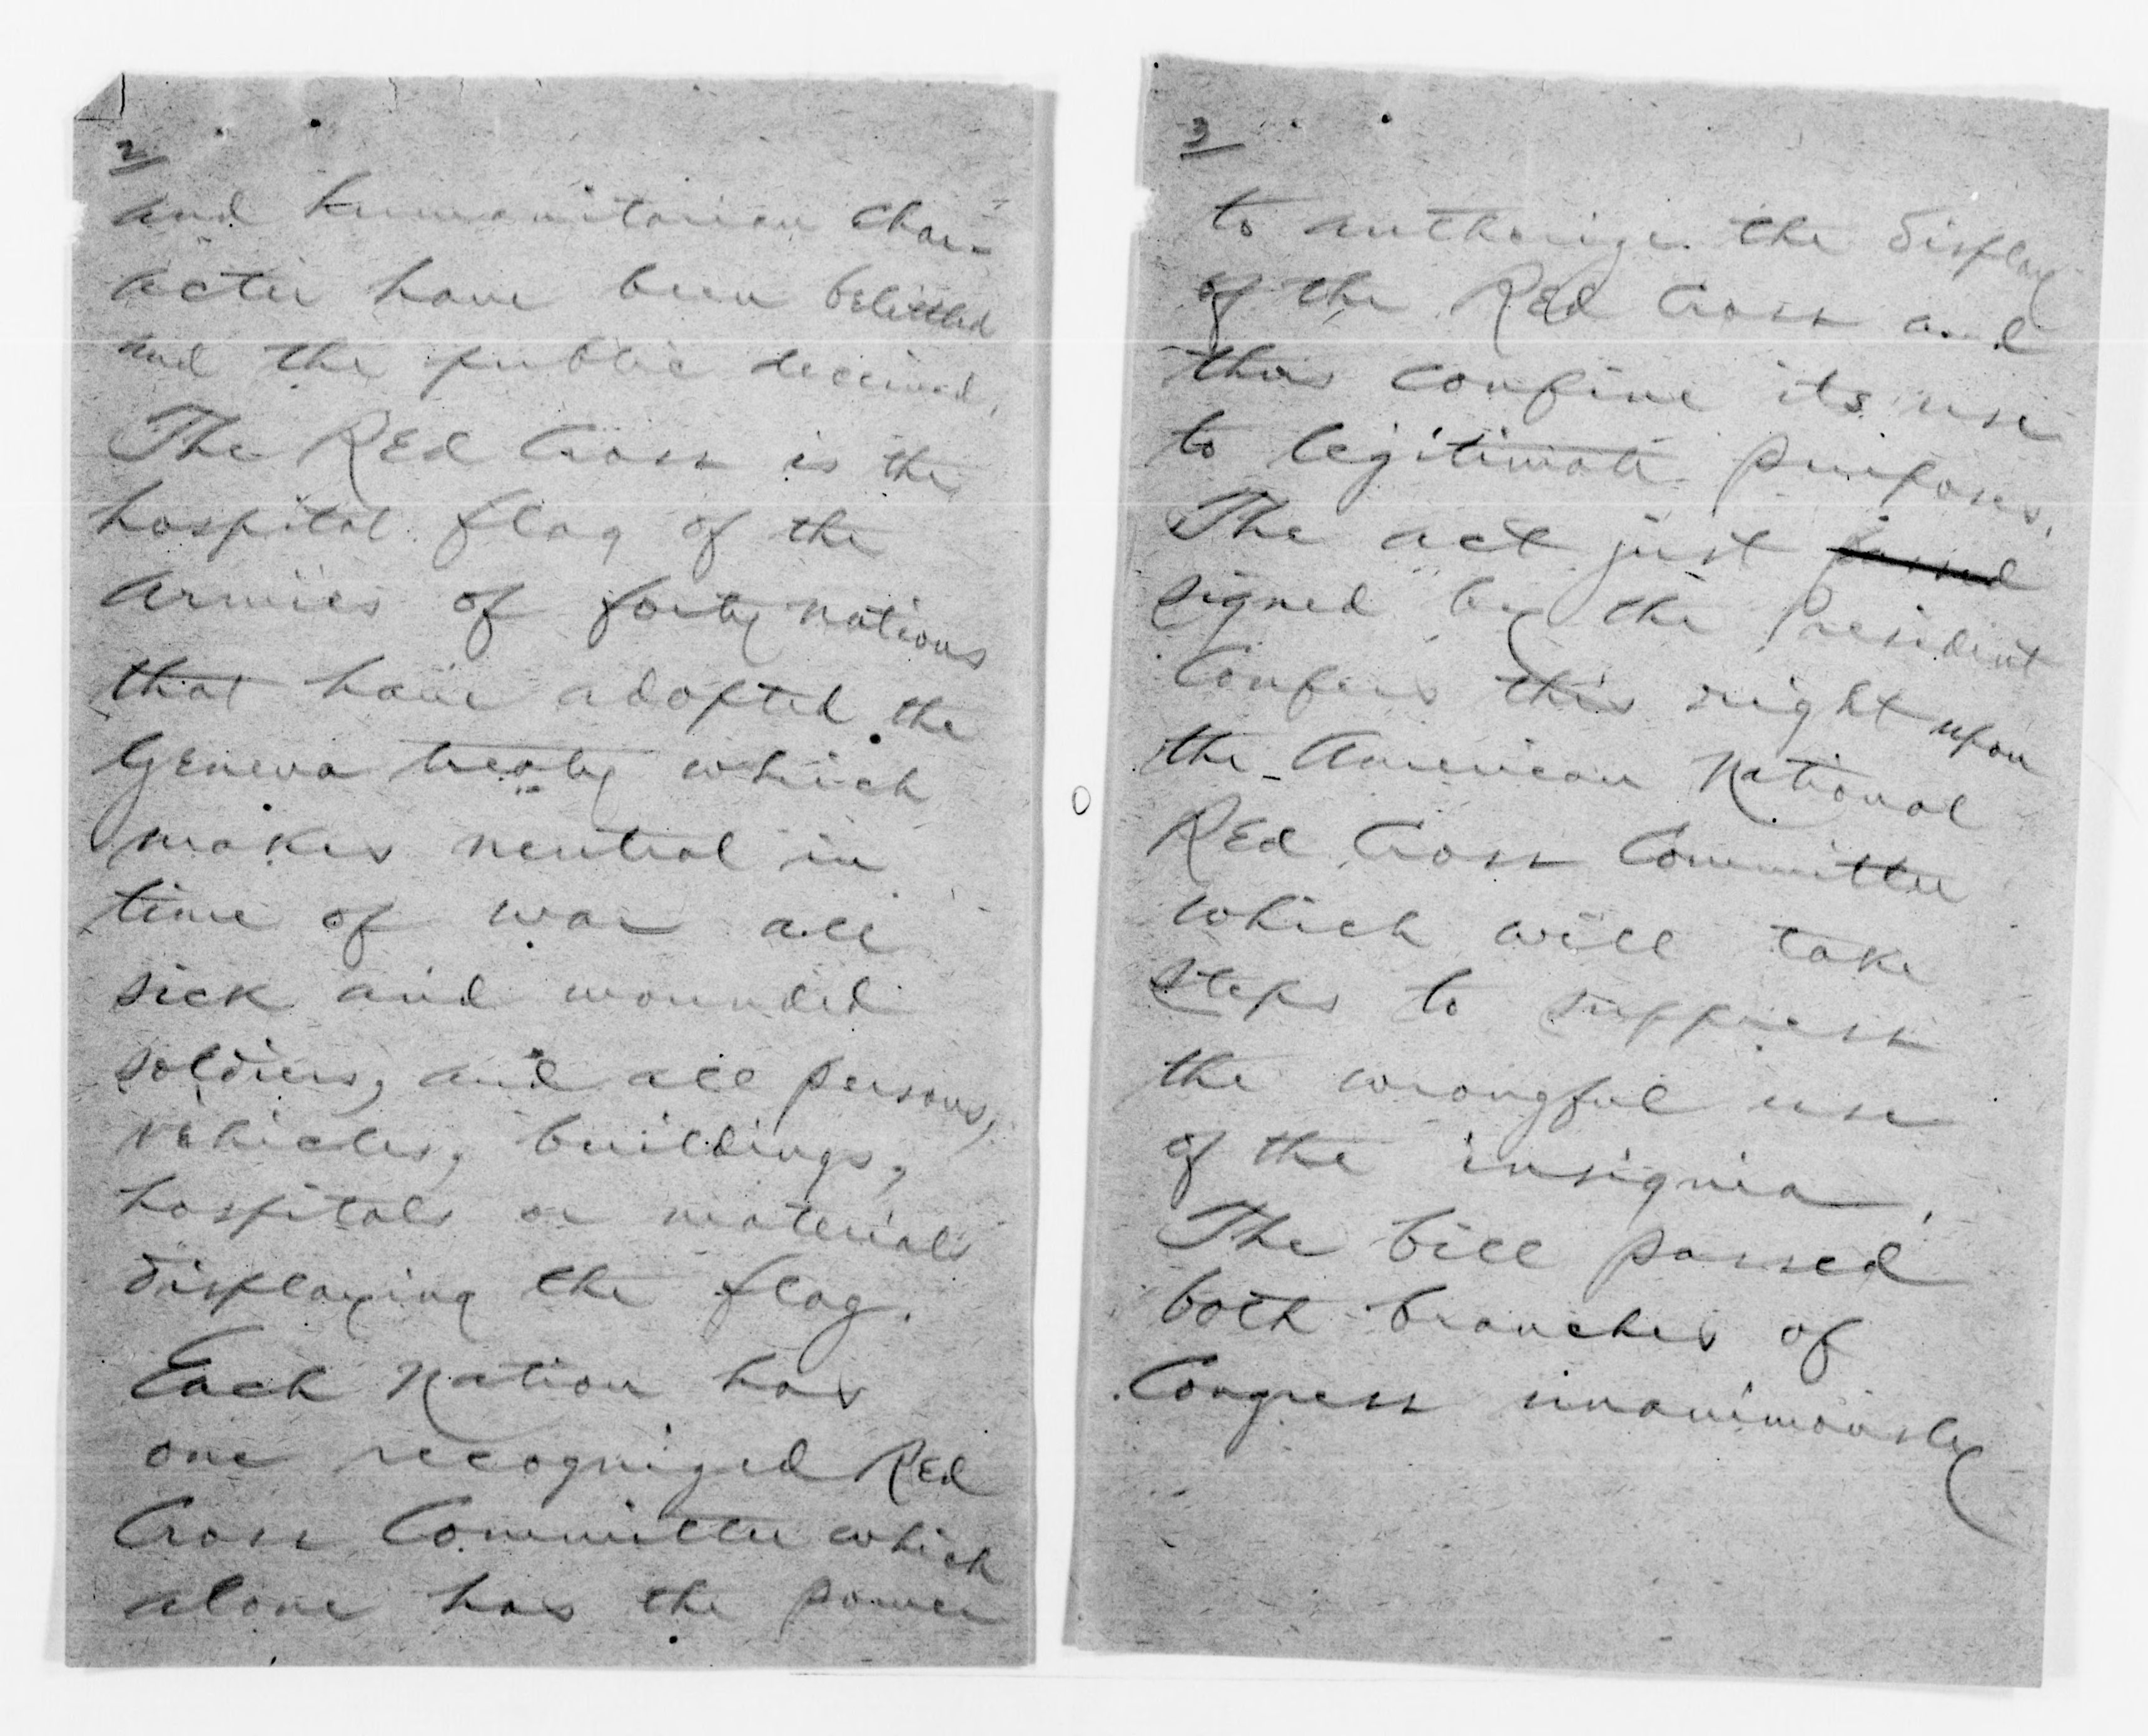 2
and humanitarian char-
acter have been belittled
and the public deceived.
The Red Cross is the
hospital flag of the
armies of forty nations
that have adopted the
Geneva treaty which
makes neutral in
time of war all
sick and wounded
soldiers, and all persons,
vehicles, buildings,
hospitals or materials
displaying the flag.
Each Nation has
one recognized Red
Cross Committee which
alone has the power
3
to authorize the display
of the Red Cross and
thus confine its use
to legitimate purposes.
The act just passed
signed by the President
Confers this right upon
the American National
Red Cross Committee
which will take
steps to suppress
the wrongful use
of the insignia.
The bill passed
both branches of
Congress unanimously